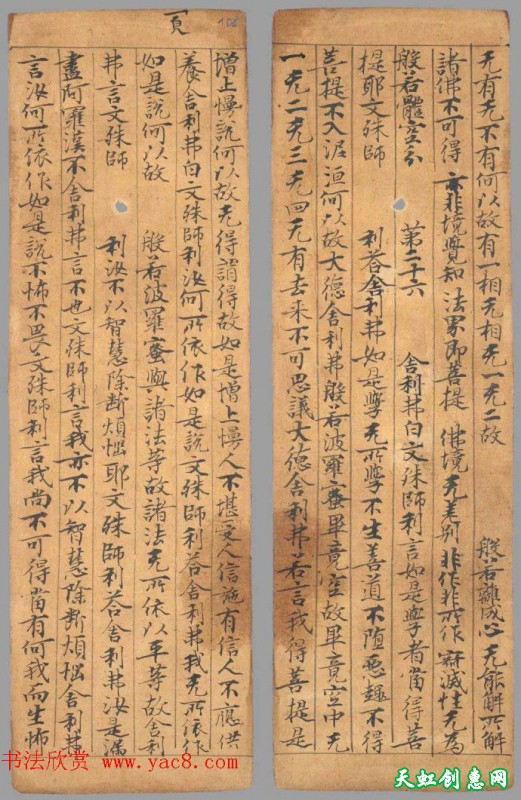 无有无不有何以故有一相无相无一无二故 般若難成心无能解所解
諸佛不可得 亦非境覺知 法界即菩提 佛境无差別 非作非所作 寂滅性无為
般若體空分 第二十六 舍利弗白文殊師利言如是學者當得菩
提耶文殊師 利荅舍利弗如是學无所學不生善道不墮惡趣不得
菩提不入泥洹何以故大德舍利弗般若波羅蜜畢竟空故畢竟空中无
一无二无三无四无有去來不可思議大德舍利弗若言我得菩提是
增上慢說何以故无得謂得故如是增上慢人不堪受人信施有信人不應供
養舍利弗白文殊師利汝何所依作如是說文殊師利荅舍利弗我无所依作
如是說何以故 般若波羅蜜與諸法等故諸法无所依以平等故舍利
弗言文殊師 利汝不以智慧除斷煩惱耶文殊師利荅舍利弗汝是漏
盡阿羅漢不舍利弗言不也文殊師利言我亦不以智慧除斷煩惱舍利弗
言汝何所依作如是說不怖不畏文殊師利言我尚不可得當有何我而生怖
书法欣赏 www.yac8.com
天虹创惠网